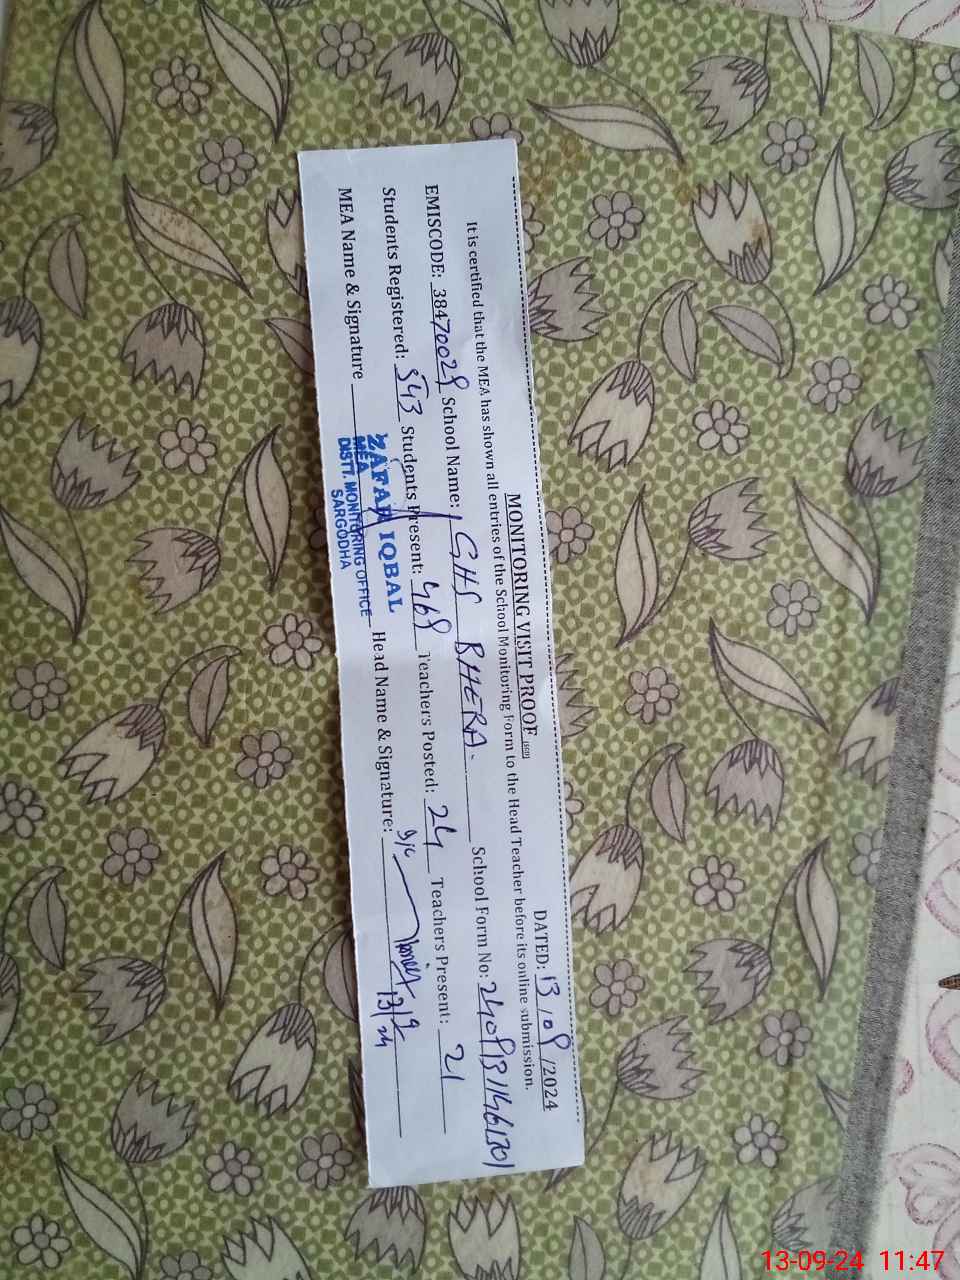 MONITORING VISIT PROOF (SED)
DATED: 13/09/2024
It is certified that the MEA has shown all entries of the School Monitoring Form to the Head Teacher before its online submission.
EMISCODE: 38470029 School Name: GHS BHERA. School Form No:
Students Registered: 543 Students Present: 469 Teachers Posted: 24 Teachers Present: 21
MEA Name & Signature Head Name & Signature: 13/9/24
ZAFAR IQBAL
MEA
DISTT. MONITORING OFFICE
SARGODHA
13-09-24 11:47